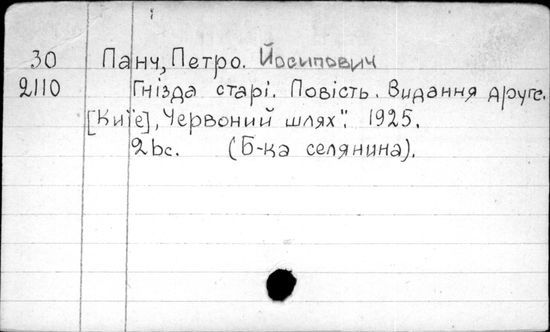 30 Панч, Петро. Йосипович
2110 Гнізда старі. Повість. Видання друге.
[Київ], „Червоний шлях". 1925.
26с. (Б-ка селянина).